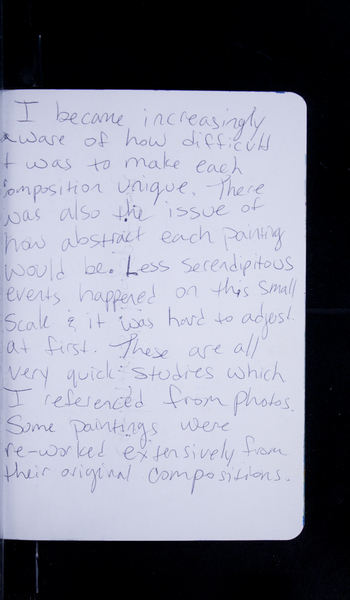 I became increasingly
aware of how difficult
it was to make each
composition unique. There
was also the issue of
how abstract each painting
would be. Less serendipitous
events happened on this small
scale & it was hard to adjust
at first. These are all
very quick studies which
I referenced from photos.
Some paintings were
re-worked extensively from
their original compositions.